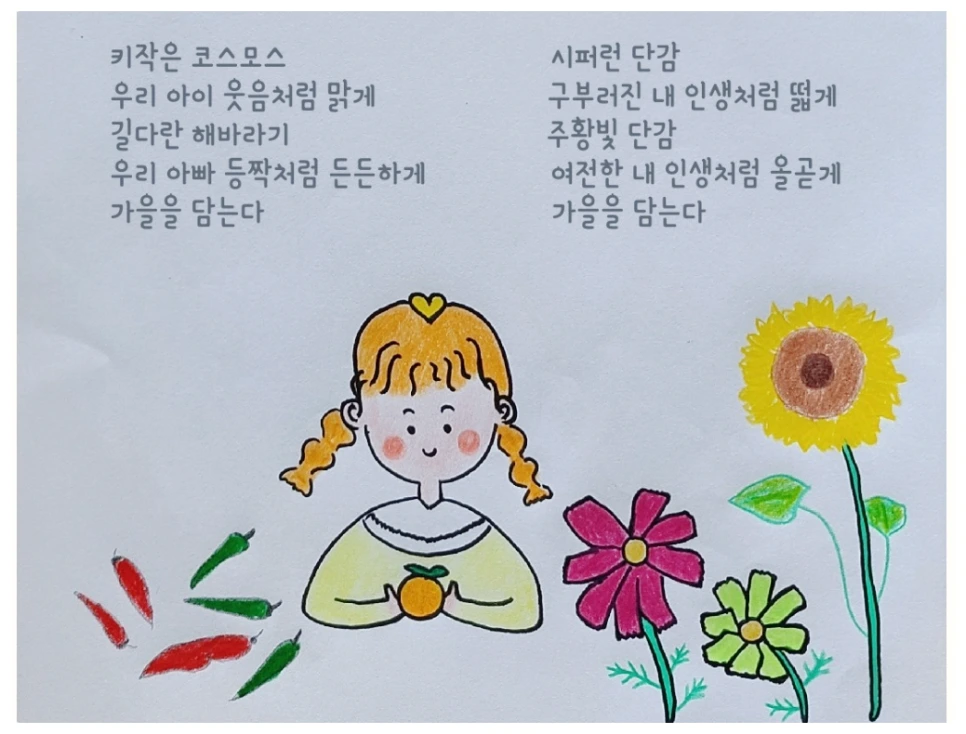 키작은 코스모스
우리 아이 웃음처럼 맑게
길다란 해바라기
우리 아빠 등짝처럼 든든하게
가을을 담는다
시퍼런 단감
구부러진 내 인생처럼 떫게
주황빛 단감
여전한 내 인생처럼 올곧게
가을을 담는다